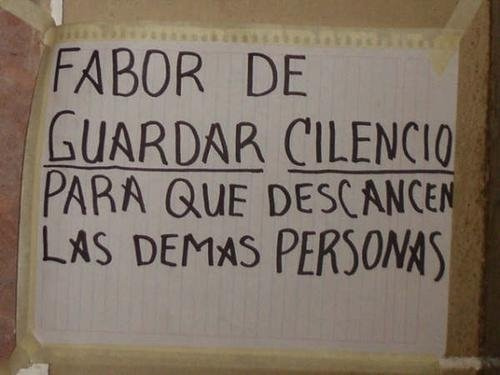 FABOR DE
GUARDAR CILENCIO
PARA QUE DESCANCEN
LAS DEMAS PERSONAS